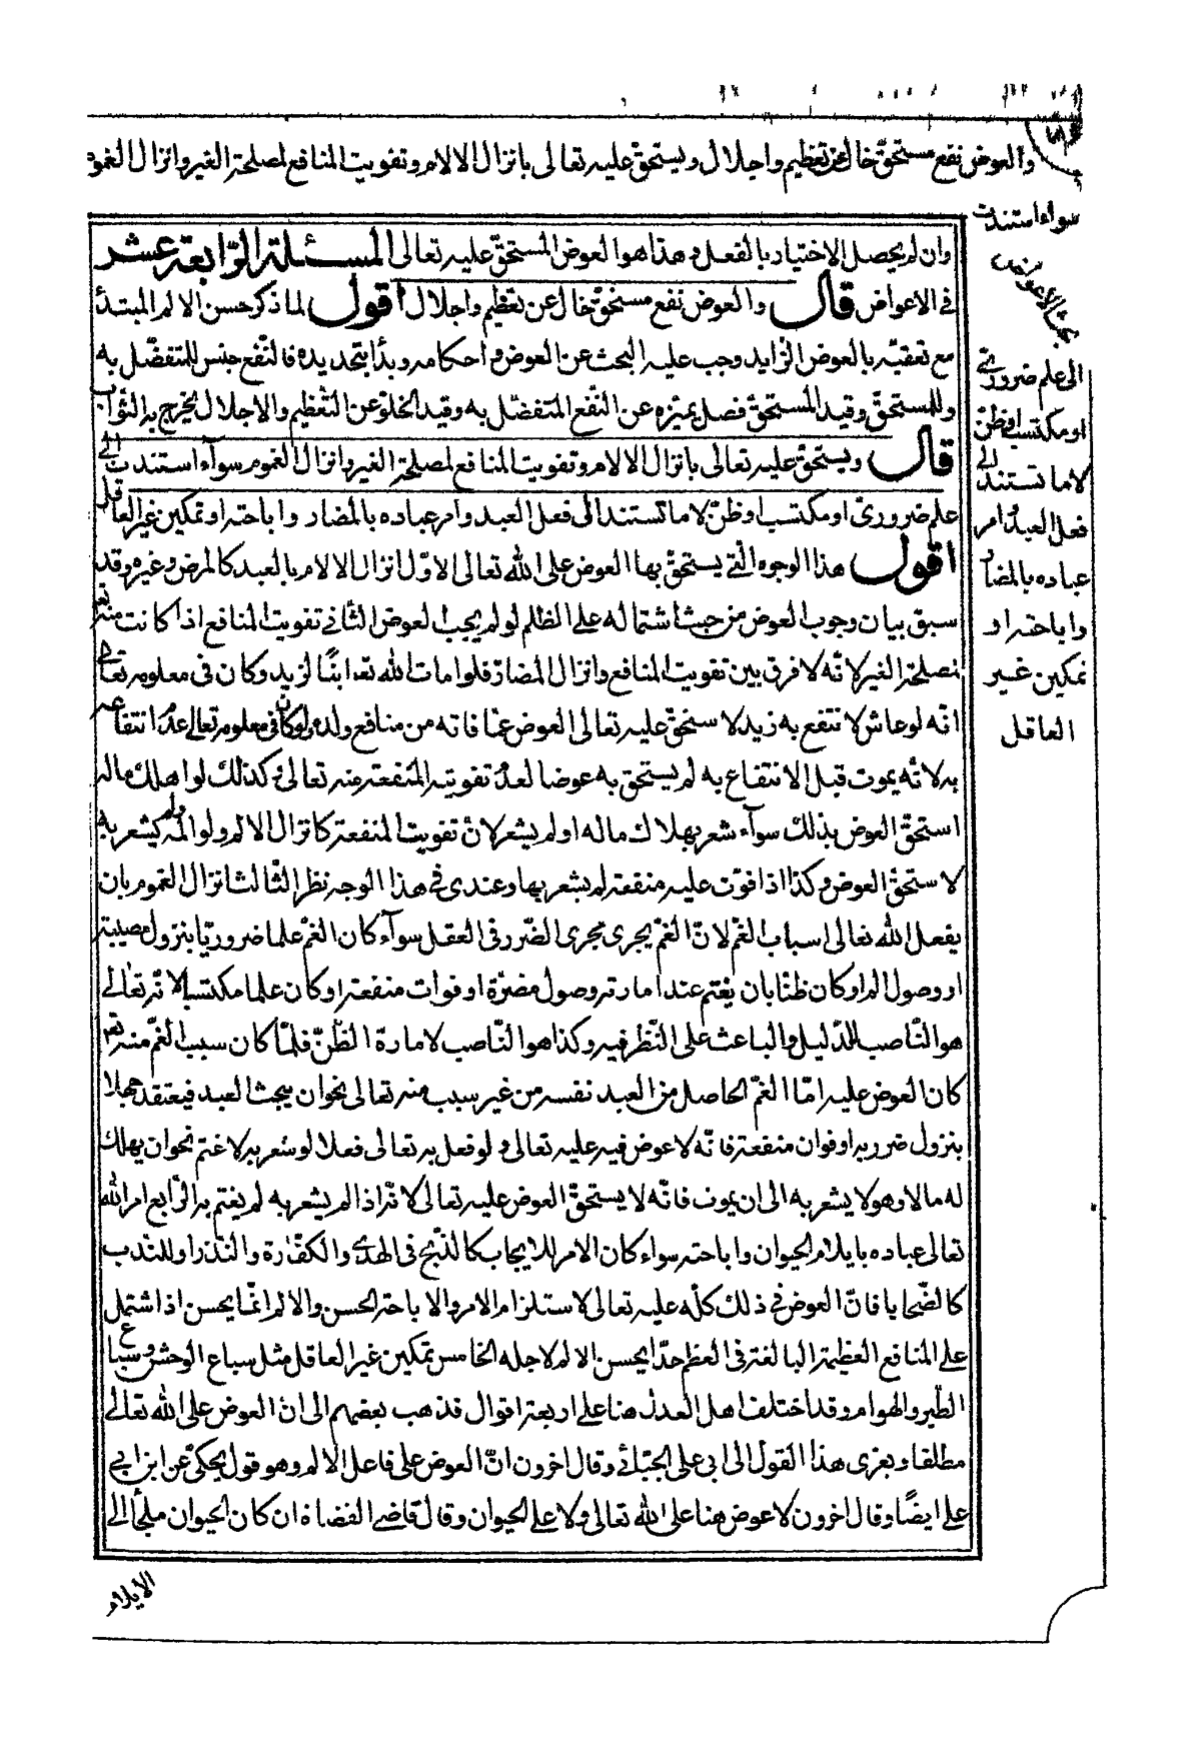 والعوض نفع مستحق خال عن تعظيم واجلال ويستحق عليه تعالى بانزال الالام وتفويت المنافع لمصلحة الغير وانزال الغموم
سواء استندت
بحث الأعواض
الى علم ضرورى
او مكتسب اوظن
لاما تستند الى
فعل العبد وامر
عباده بالمضار
واباحته او
تمكين غير
العاقل
وان لم يحصل الاختيار بالفعل وهذا هو العوض المستحق عليه تعالى المسئلة الرّابعة عشر
فى الاعواض قال والعوض نفع مستحقّ خال عن تعظيم واجلال اقول لما ذكر حسن الالم المبتدأ
مع تعقيبه بالعوض الزايد وجب عليه البحث عن العوض واحكامه وبدأ بتحديده فالنّفع جنس للمتفضّل به
وللمستحقّ وقيد المستحقّ فصل يميّزه عن النّفع المتفضّل به وقيد الخلوّ عن التّعظيم والاجلال يخرج به الثّواب
قال ويستحقّ عليه تعالى بانزال الالام وتفويت المنافع لمصلحة الغير وانزال الغموم سوآء استندت الى
علم ضرورىّ او مكتسب او ظنّ لاما تستند الى فعل العبد وامر عباده بالمضار واباحته او تمكين غير العاقل
اقول هذا الوجوه التى يستحقّ بها العوض على الله تعالى الاوّل انزال الالام بالعبد كالمرض وغيره وقد
سبق بيان وجوب العوض من حيث اشتماله على الظلم لو لم يجب العوض الثّانى تفويت المنافع اذا كانت منه تعـ
لمصلحة الغير لانّه لا فرق بين تفويت المنافع وانزال المضارّ فلو امات الله تعـ ابنًا لزيد وكان فى معلومه تعالى
انّه لو عاش لانتفع به زيد لاستحقّ عليه تعالى العوض عمّا فاته من منافع ولده ولو كان فى معلومه تعالى عدم انتفاعه
به لانّه يموت قبل الانتفاع به لم يستحق به عوضا لعدم تفويته المنفعة منه تعالى وكذلك لو اهلك ماله
استحقّ العوض بذلك سوآء شعر بهلاك ماله او لم يشعر لانّ تفويت المنفعة كانزال الالم ولو المه ولم يشعر به
لاستحقّ العوض وكذا اذا فوّت عليه منفعة لم يشعر بها وعندى فى هذا الوجه نظر الثّالث انزال الغموم بان
يفعل الله تعالى اسباب الغمّ لانّ الغمّ يجرى مجرى الضّرر فى العقل سوآء كان الغمّ علما ضروريّا بنزول مصيبة
او وصول الم او كان ظنّا بان يغتم عند امارة وصول مضرّة او فوات منفعة او كان علما مكتسبا لانّه تعالى
هو النّاصب للدّليل والباعث على النّظر فيه وكذا هو النّاصب لامارة الظّنّ فلمّا كان سبب الغمّ منه تعـ
كان العوض عليه امّا الغمّ الحاصل من العبد نفسه من غير سبب منه تعالى نحو ان يبحث العبد فيعتقد جهلا
بنزول ضرر به او فوات منفعة فانّه لا عوض فيه عليه تعالى ولو فعل به تعالى فعلا لو شعر به لاغتم نحو ان يهلك
له مالا وهو لا يشعر به الى ان يموت فانّه لا يستحقّ العوض عليه تعالى لانّه اذا لم يشعر به لم يغتم به الرّابع امر الله
تعالى عباده بايلام الحيوان واباحته سواء كان الامر للايجاب كالذّبح فى الهدى والكفّارة والنذر او للندب
كالضّحايا فانّ العوض فى ذلك كلّه عليه تعالى لاستلزام الامر والاباحة الحسن والالم انّما يحسن اذا اشتمل
على المنافع العظيمة البالغة فى العظم حدّا يحسن الالم لاجله الخامس تمكين غير العاقل مثل سباع الوحش وسباع
الطّير والهوام وقد اختلف اهل العدل هنا على اربعة اقوال فذهب بعضهم الى انّ العوض على الله تعالى
مطلقا ويعزى هذا القول الى ابى على الجبّائى وقال اخرون انّ العوض على فاعل الالم وهو قول يحكى عن ابن ابى
على ايضًا وقال اخرون لا عوض هنا على الله تعالى ولا على الحيوان وقال قاضى القضاة ان كان الحيوان ملجأ الى
الايلام